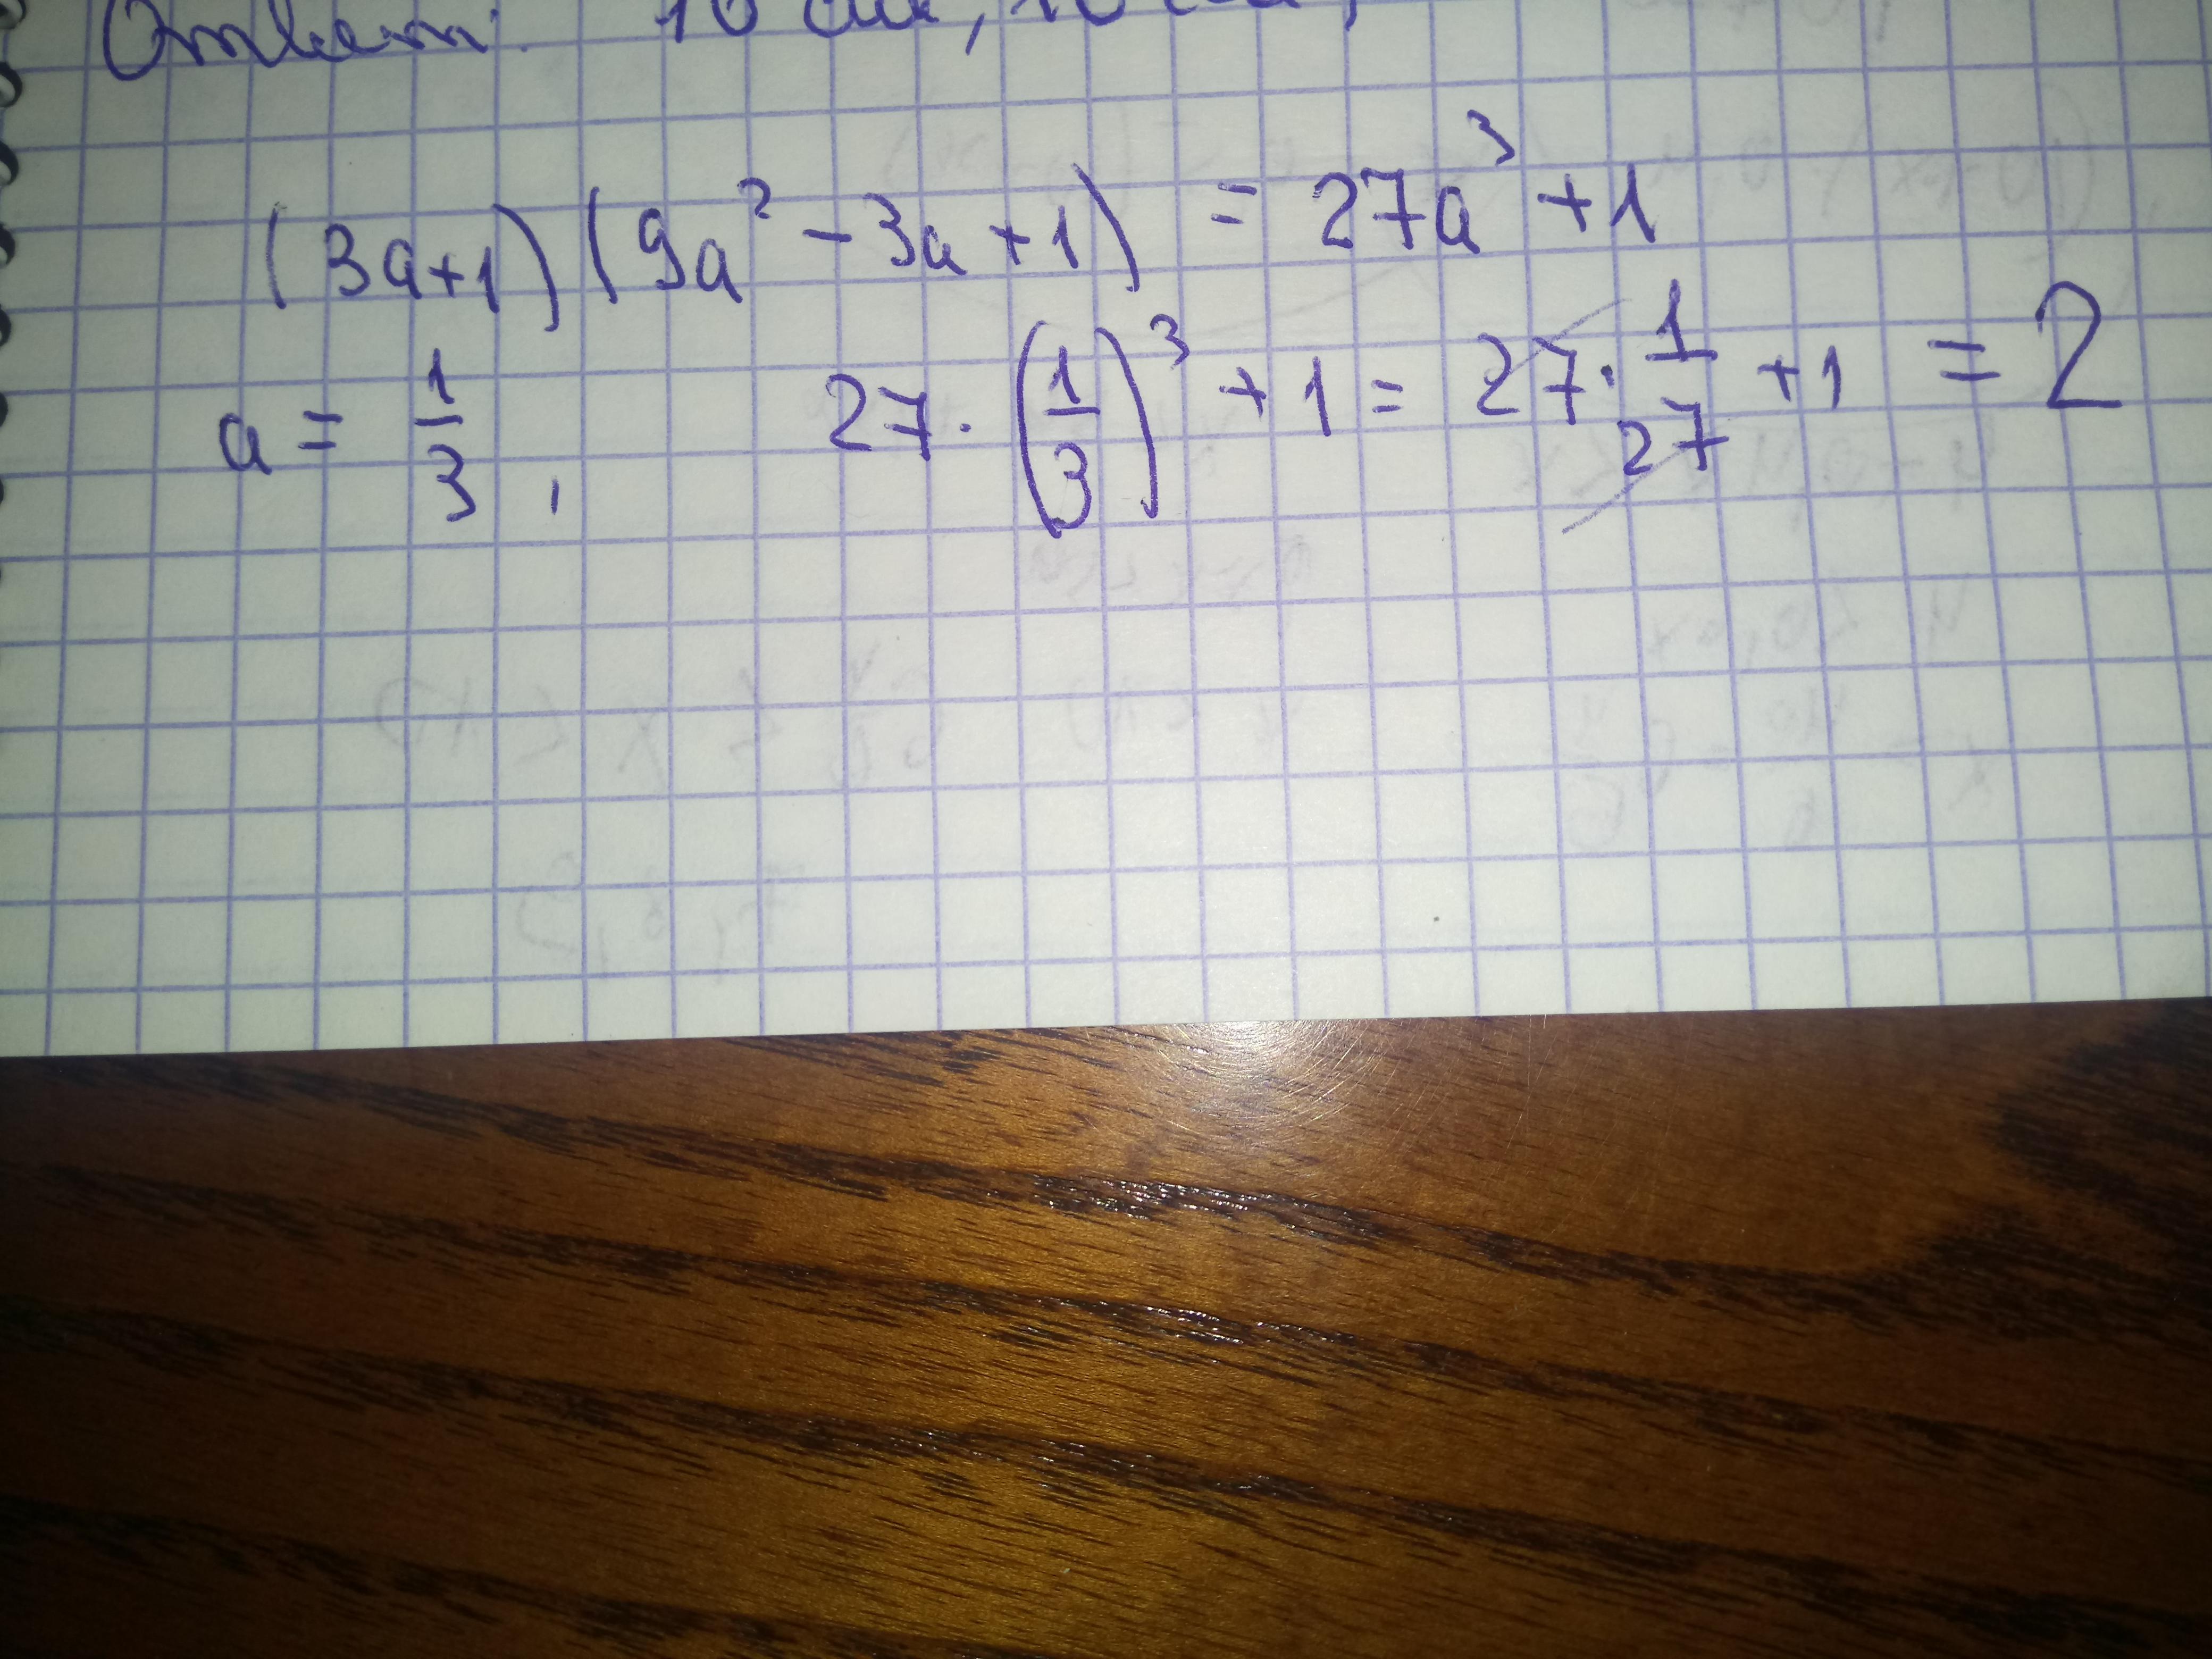 Ответ: 10
(3a+1)(9a² - 3a + 1) = 27a³ + 1
a = 1/3, 27 · (1/3)³ + 1 = 27 · 1/27 + 1 = 2